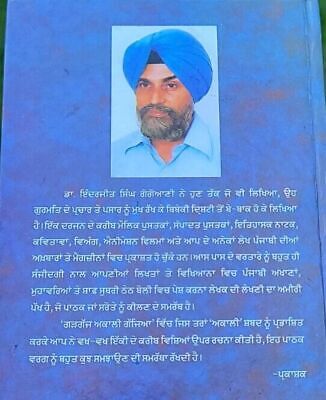 ਡਾ. ਇੰਦਰਜੀਤ ਸਿੰਘ ਗੋਗੋਆਣੀ ਨੇ ਹੁਣ ਤੱਕ ਜੋ ਵੀ ਲਿਖਿਆ, ਉਹ
ਗੁਰਮਤਿ ਦੇ ਪ੍ਰਚਾਰ ਤੇ ਪਸਾਰ ਨੂੰ ਮੁੱਖ ਰੱਖ ਕੇ ਬਿਬੇਕੀ ਦ੍ਰਿਸ਼ਟੀ ਤੋਂ ਬੇ-ਬਾਕ ਹੋ ਕੇ ਲਿਖਿਆ
ਹੈ। ਇੱਕ ਦਰਜਨ ਦੇ ਕਰੀਬ ਮੌਲਿਕ ਪੁਸਤਕਾਂ, ਸੰਪਾਦਤ ਪੁਸਤਕਾਂ, ਇਤਿਹਾਸਿਕ ਨਾਟਕ,
ਕਵਿਤਾਵਾਂ, ਵਿਅੰਗ, ਐਨੀਮੇਸ਼ਨ ਫਿਲਮਾਂ ਅਤੇ ਆਪ ਦੇ ਅਨੇਕਾਂ ਲੇਖ ਪੰਜਾਬੀ ਦੀਆਂ
ਅਖ਼ਬਾਰਾਂ ਤੇ ਮੈਗਜ਼ੀਨਾਂ ਵਿਚ ਪ੍ਰਕਾਸ਼ਤ ਹੋ ਚੁੱਕੇ ਹਨ। ਆਸ ਪਾਸ ਦੇ ਵਰਤਾਰੇ ਨੂੰ ਬਹੁਤ ਹੀ
ਸੰਜੀਦਗੀ ਨਾਲ ਆਪਣੀਆਂ ਲਿਖਤਾਂ ਤੇ ਵਿਖਿਆਨਾ ਵਿਚ ਪੰਜਾਬੀ ਅਖਾਣਾਂ,
ਮੁਹਾਵਰਿਆਂ ਤੇ ਸ਼ਾਫ਼ ਸੁਥਰੀ ਠੇਠ ਬੋਲੀ ਵਿਚ ਪੇਸ਼ ਕਰਨਾ ਲੇਖਕ ਦੀ ਲੇਖਣੀ ਦਾ ਅਮੀਰੀ
ਪੱਖ ਹੈ, ਜੋ ਪਾਠਕ ਜਾਂ ਸਰੋਤੇ ਨੂੰ ਕੀਲਣ ਦੇ ਸਮਰੱਥ ਹੈ।
'ਗੜਗੱਜ ਅਕਾਲੀ ਗੱਜਿਆ' ਵਿੱਚ ਜਿਸ ਤਰਾਂ 'ਅਕਾਲੀ' ਸ਼ਬਦ ਨੂੰ ਪ੍ਰਭਾਸ਼ਿਤ
ਕਰਕੇ ਆਪ ਨੇ ਵਖ-ਵਖ ਇੱਕੀ ਦੇ ਕਰੀਬ ਵਿਸ਼ਿਆਂ ਉਪਰ ਰਚਨਾ ਕੀਤੀ ਹੈ, ਇਹ ਪਾਠਕ
ਵਰਗ ਨੂੰ ਬਹੁਤ ਕੁਝ ਸਮਝਾਉਣ ਦੀ ਸਮਰੱਥਾ ਰੱਖਦੀ ਹੈ।
-ਪ੍ਰਕਾਸ਼ਕ